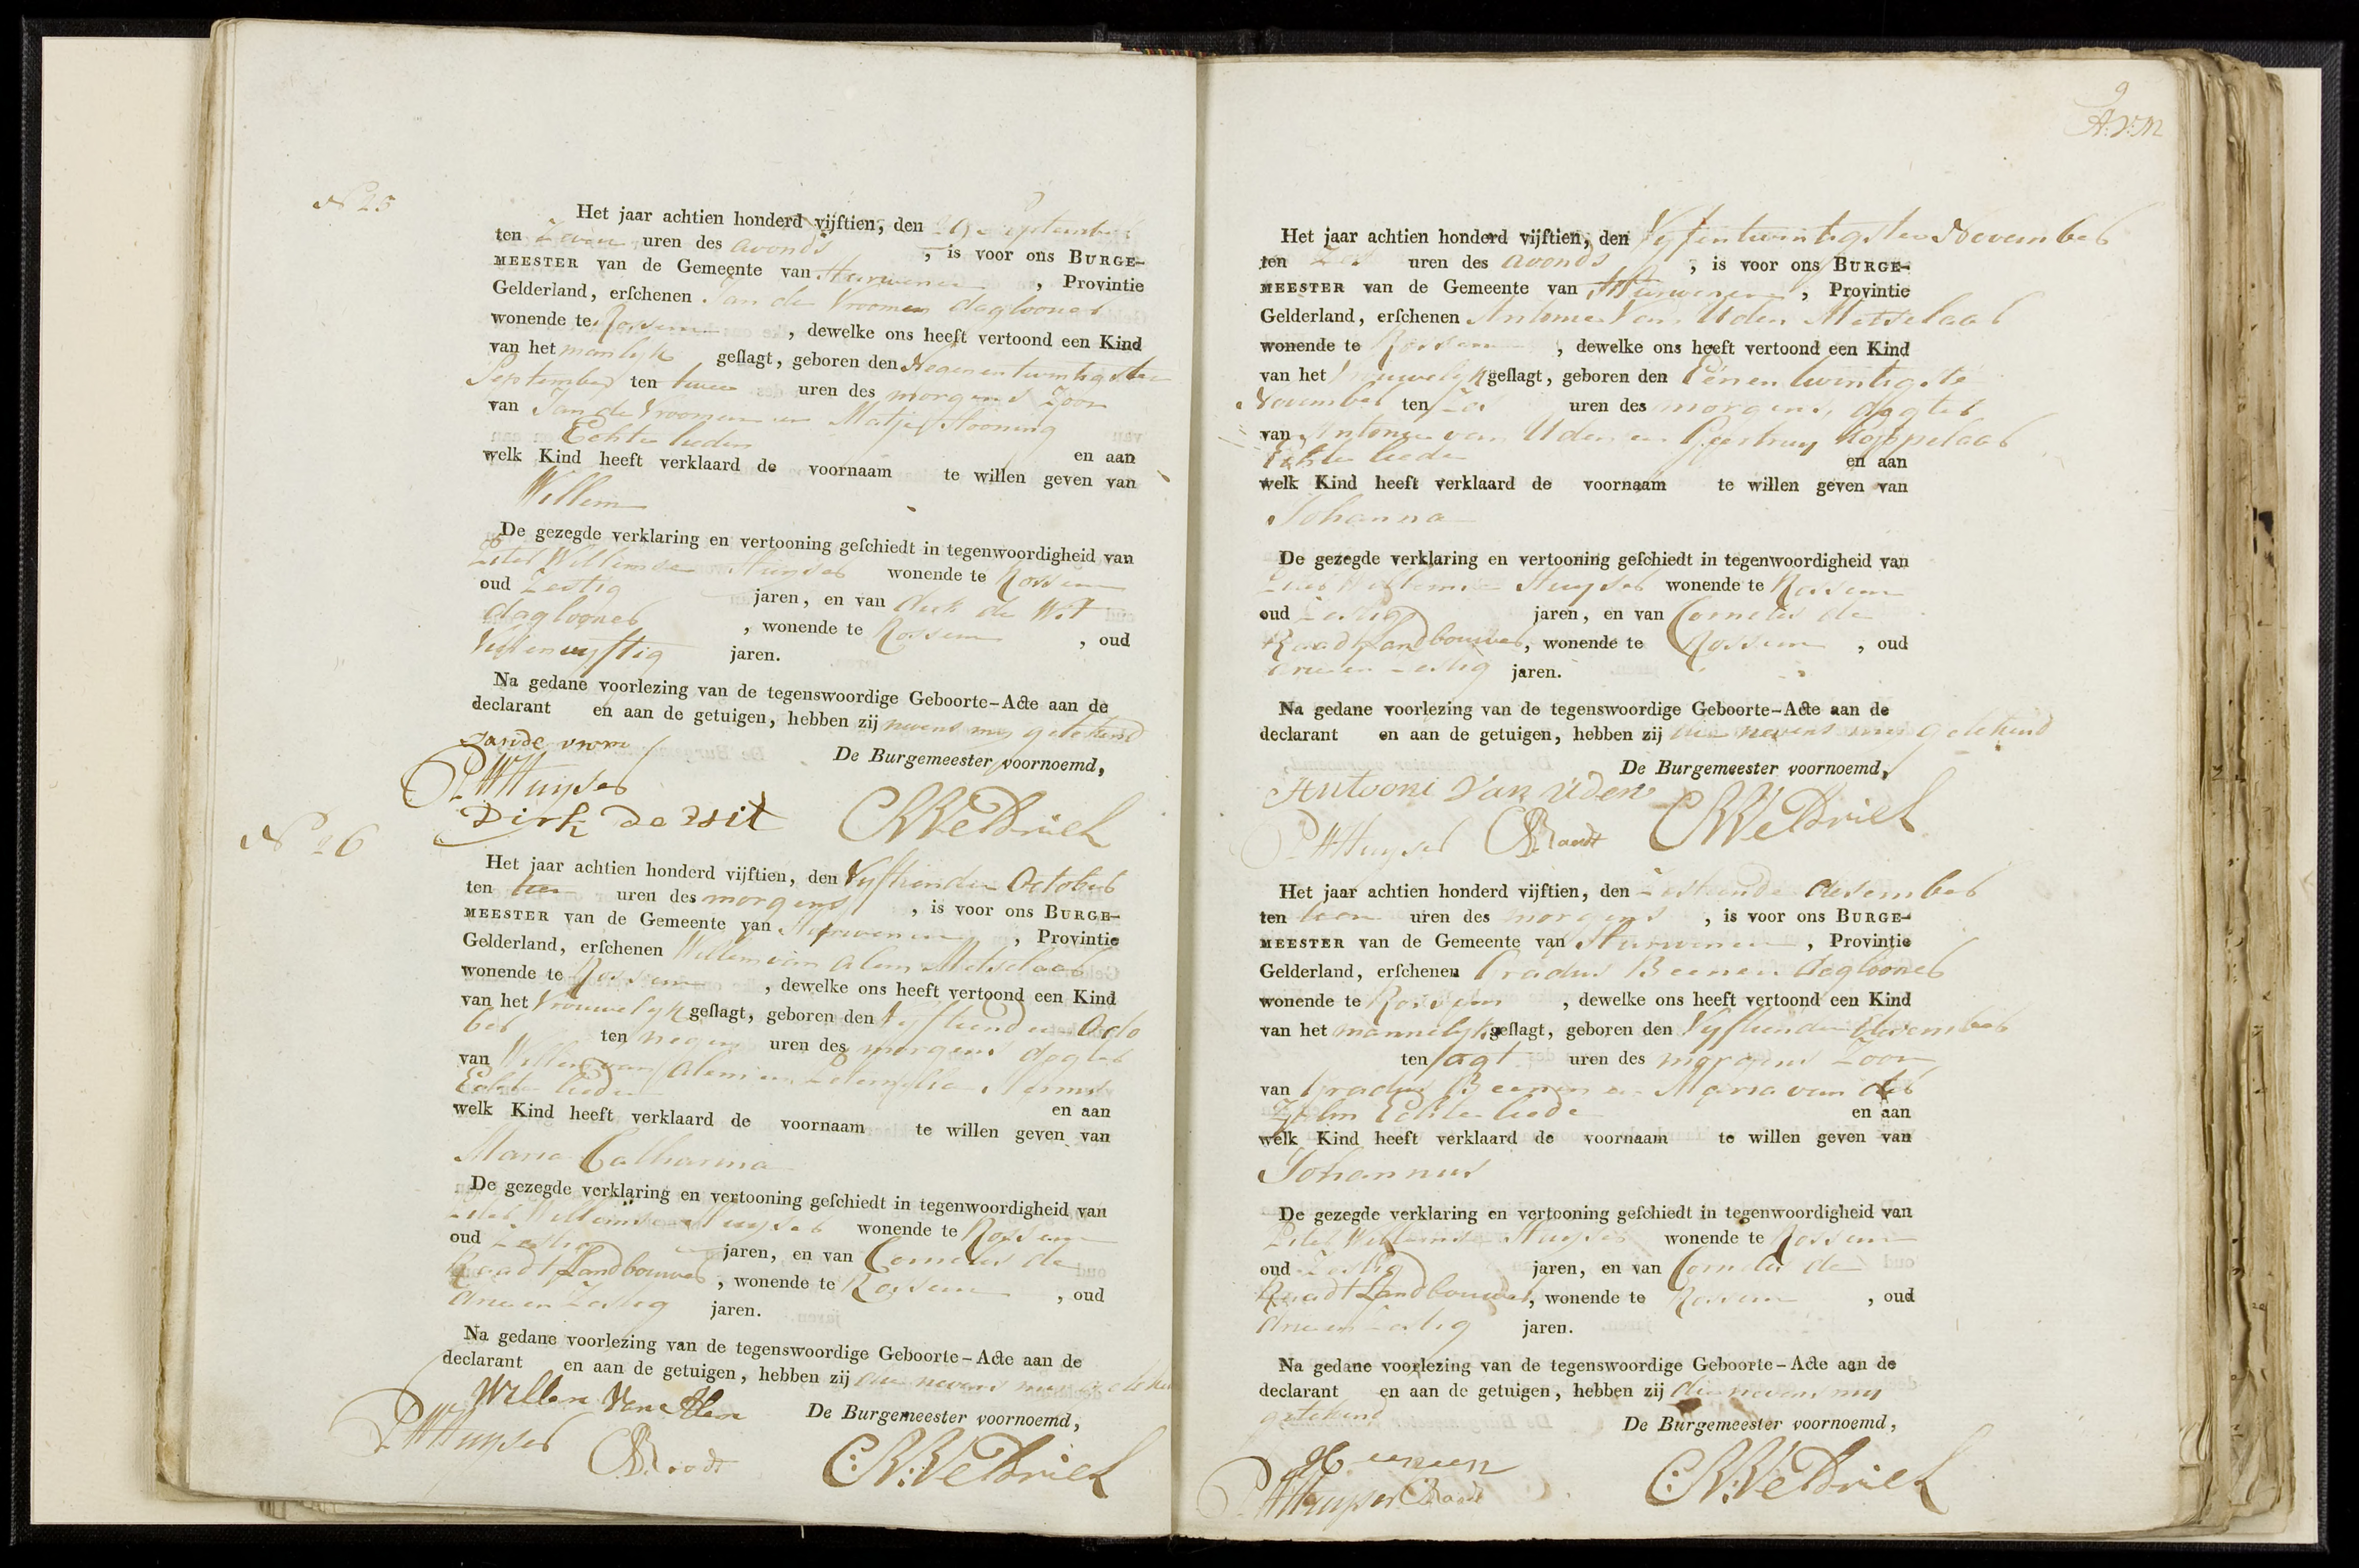 N 25
Het jaar achtien honderd vijftien, den 29 September
ten Zeven uren des avonds , is voor ons BURGE-
MEESTER van de Gemeente van Hurwenen , Provintie
Gelderland, erschenen Jan de Vroomen daglooner
wonende te Rossum , dewelke ons heeft vertoond een Kind
van het manlyk geslagt, geboren den Negenentwintigsten
September ten twee uren des morgens Zoon
van Jan de Vroomen en Matje Slooning
Echte lieden en aan
welk Kind heeft verklaard de voornaam te willen geven van
Willem
De gezegde verklaring en vertooning geschiedt in tegenwoordigheid van
Peter Willemse Huyser wonende te Rossum
oud Zestig jaren, en van dirk de Wit
daglooner , wonende te Rossum , oud
vyftig jaren.
Na gedane voorlezing van de tegenswoordige Geboorte-Acte aan de
declarant en aan de getuigen, hebben zij nevens my getekend
Jande vrom De Burgemeester voornoemd,
P.W Huyser
Dirk De Wit C.R.VeDriel
N 26
Het jaar achtien honderd vijftien, den Vyftienden October
ten tien uren des morgens , is voor ons BURGE-
MEESTER van de Gemeente van Hurwenen , Provintie
Gelderland, erschenen Willem van Alem Metselaar
wonende te Rossum , dewelke ons heeft vertoond een Kind
van het Vrouwelyk geslagt, geboren den Vyftienden Octo
ber ten negen uren des morgens dogter
van Willem van Alem en
Echte lieden en aan
welk Kind heeft verklaard de voornaam te willen geven van
Maria Catharina
De gezegde verklaring en vertooning geschiedt in tegenwoordigheid van
Peter Willemse Huyser wonende te Rossum
oud Zestig jaren, en van Cornelis de
Raadt Landbouwer , wonende te Rossum , oud
drie en Zestig jaren.
Na gedane voorlezing van de tegenswoordige Geboorte-Acte aan de
declarant en aan de getuigen, hebben zij die nevens my geteken
Willem Van Alem De Burgemeester voornoemd,
P.W Huyser
CD Raadt C:R:VeDriel
9
A:V:M
Het jaar achtien honderd vijftien, den Vyfentwintigsten November
ten Zes uren des avonds , is voor ons BURGE-
MEESTER van de Gemeente van Hurwenen , Provintie
Gelderland, erschenen Antonie Van Uden Metselaar
wonende te Rossum , dewelke ons heeft vertoond een Kind
van het vrouwelyk geslagt, geboren den Eenentwintigste
November ten Zes uren des morgens, dogter
van Antonie van Uden en Geertruy Koppelaar
Echte liede en aan
welk Kind heeft verklaard de voornaam te willen geven van
Johanna
De gezegde verklaring en vertooning geschiedt in tegenwoordigheid van
Peter Willemse Huyser wonende te Rossum
oud Zestig jaren, en van Cornelis de
Raadt Landbouwer, wonende te Rossum , oud
drie en Zestig jaren.
Na gedane voorlezing van de tegenswoordige Geboorte-Acte aan de
declarant en aan de getuigen, hebben zij die nevens my getekend
De Burgemeester voornoemd,
Antooni Van Uden
P.W Huyser CD Raadt C R VeDriel
Het jaar achtien honderd vijftien, den Zestiende desember
ten tien uren des morgens , is voor ons BURGE-
MEESTER van de Gemeente van Hurwenen , Provintie
Gelderland, erschenen Gradus Beenen daglooner
wonende te Rossum , dewelke ons heeft vertoond een Kind
van het mannelyk geslagt, geboren den Vyftienden desember
ten agt uren des morgens Zoon
van Gradus Beenen en Maria van der
en Echte liede en aan
welk Kind heeft verklaard de voornaam te willen geven van
Johannus
De gezegde verklaring en vertooning geschiedt in tegenwoordigheid van
Peter Willemse Huyser wonende te Rossum
oud Zestig jaren, en van Cornelis de
Raadt Landbouwer, wonende te Rossum , oud
drie en Zestig jaren.
Na gedane voorlezing van de tegenswoordige Geboorte-Acte aan de
declarant en aan de getuigen, hebben zij die nevens my
getekend De Burgemeester voornoemd,
P.W Huyser CD Raadt C:R:VeDriel